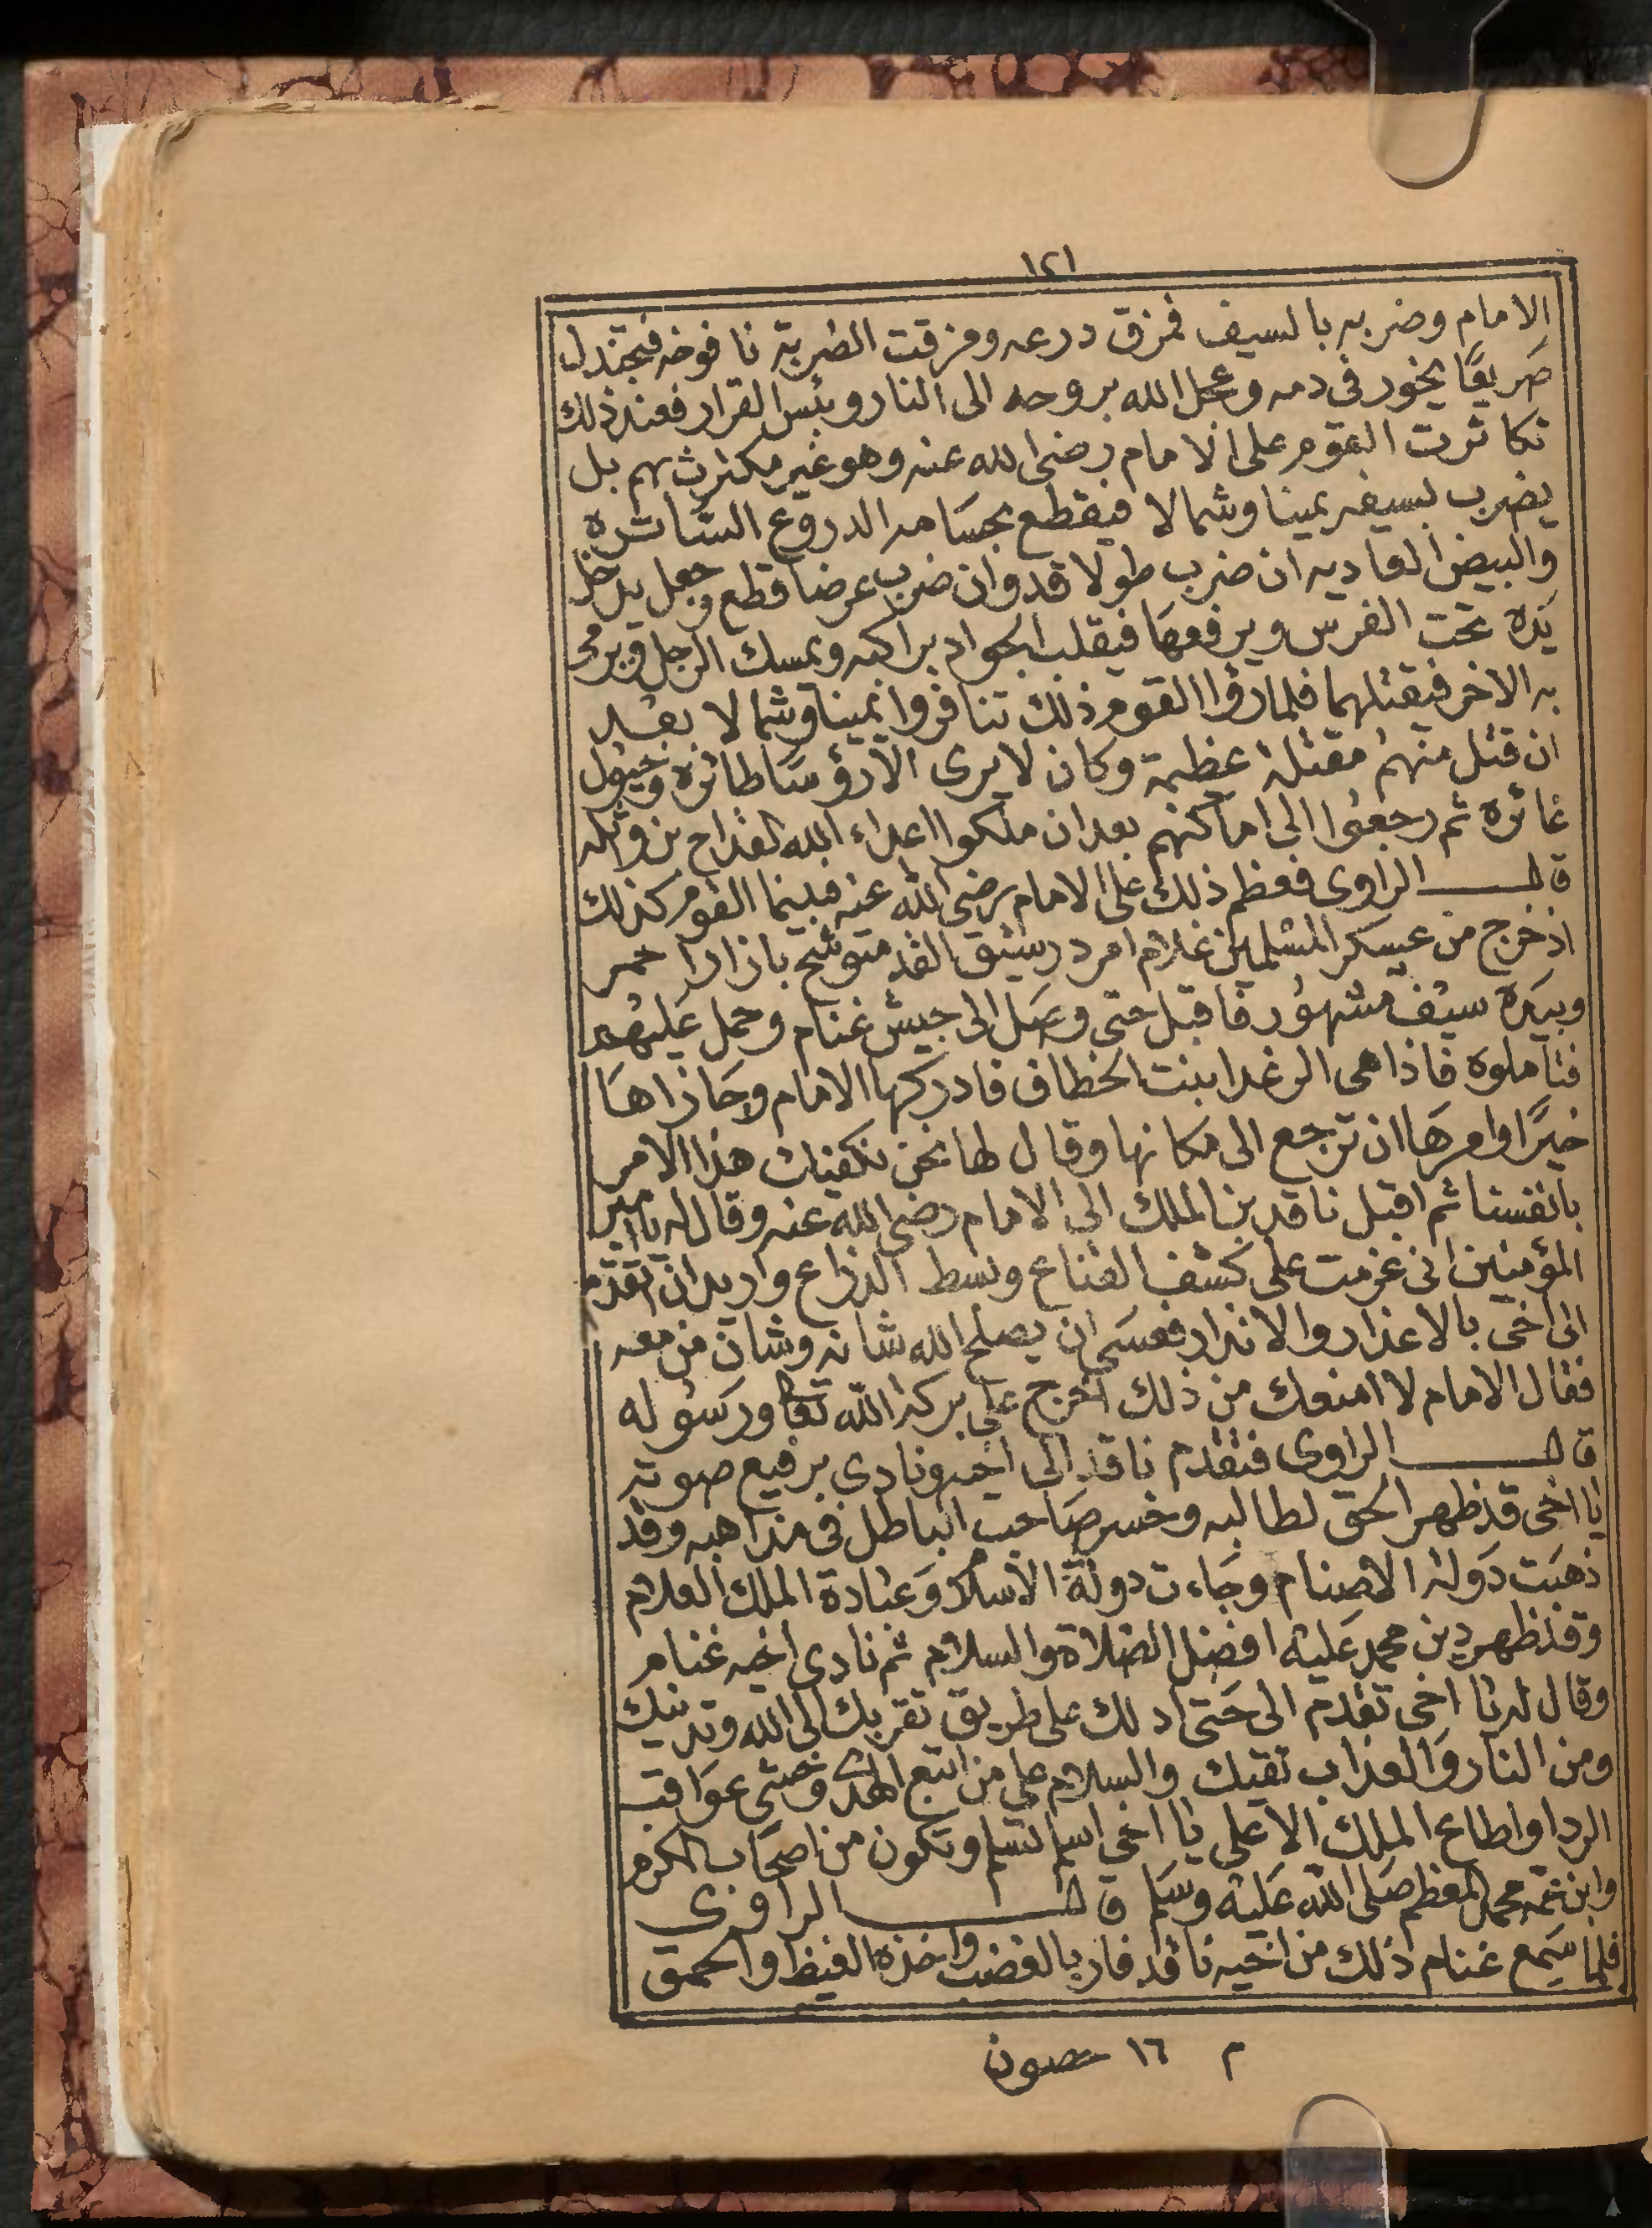 ١٢١
الامام وضربه بالسيف فمزق درعه ومزقت الضربة نافوخه فتجندل
صَريعًا يخور فى دمه وعجل الله بروحه الى النار وبئس القرار فعند ذلك
تكاثرت القوم على الامام رضى الله عنه وهو غير مكترث بهم بل
يضرب بسيفه يمينا وشمالا فيقطع بحسَامه الدروع السَّاتره
والبيض العاديه ان ضرب طولا قد وان ضرب عرضا قطع وجعل يدخل
يَده تحت الفرس ويرفعهَا فيقلب الجواد براكبه ويمسك الرجل ويرمى
به الاخر فيقتلهما فلما رؤا القوم ذلك تنافروا يمينا وشمالا بعْد
ان قتل منهمُ مقتلة عظيمة وكان لا يرى الا رؤسَا طائره وخيُول
غائره ثم رجعوُا الى اماكنهم بعد ان ملكوا اعداء الله القداح بن وائله
قال الراوى فعظم ذلك على الامام رضى الله عنه فبينما القوم كذلك
اذ خرج من عسكر المسْلمين غلام امرد رشيق القد متوشح بازار احمر
وبيَده سيْف مشهوُر فاقبل حتى وصَل الى جيش غنام وحمل عَليْهم
فتاملوه فاذا هى الرغدا بنت الخطاف فادركها الامام وجَازاهَا
خيرًا وامرهَا ان ترجع الى مكانها وقال لها نحن نكفيك هذا الامر
بانفسنا ثم اقبل ناقد بن الملك الى الامام رضى الله عنه وقال له يا امير
المؤمنين انى عزمت على كشف القناع وبسط الذراع واريد ان اتقدم
الى اخى بالاعذار والانذار فعسَى ان يصلح الله شانه وشان من معه
فقال الامام لا امنعك من ذلك اخرج على بركة الله تعالى ورسوُله
قال الراوى فتقدم ناقد الى اخيه ونادى برفيع صوته
يا اخى قد ظهر الحق لطالبه وخسر صَاحب الباطل فى مذاهبه وقد
ذهبَت دَولة الاصنام وجَاءت دولة الاسلام وَعبادة الملك العلام
وقد ظهر دين محمد عَليْه افضل الصلاة والسلام ثم نادى اخيه غنام
وقال له يا اخى تقدم الى حَتى ادلك على طريق تقربك الى الله وتدنيك
ومن النار وَالعذاب تقيك والسلام على من اتبع الهدى وخشى عوَاقب
الردا واطاع الملك الاعلى يا اخى اسلم تسلم وتكون من اصحَاب الكرم
وابن عمه محمد المعظم صَلى الله عَليْه وسَلم قال الراوى
فلما سَمع غنام ذلك من اخيه ناقد فار بالغضب واخذه الغيظ والحمق
م ١٦ حصون